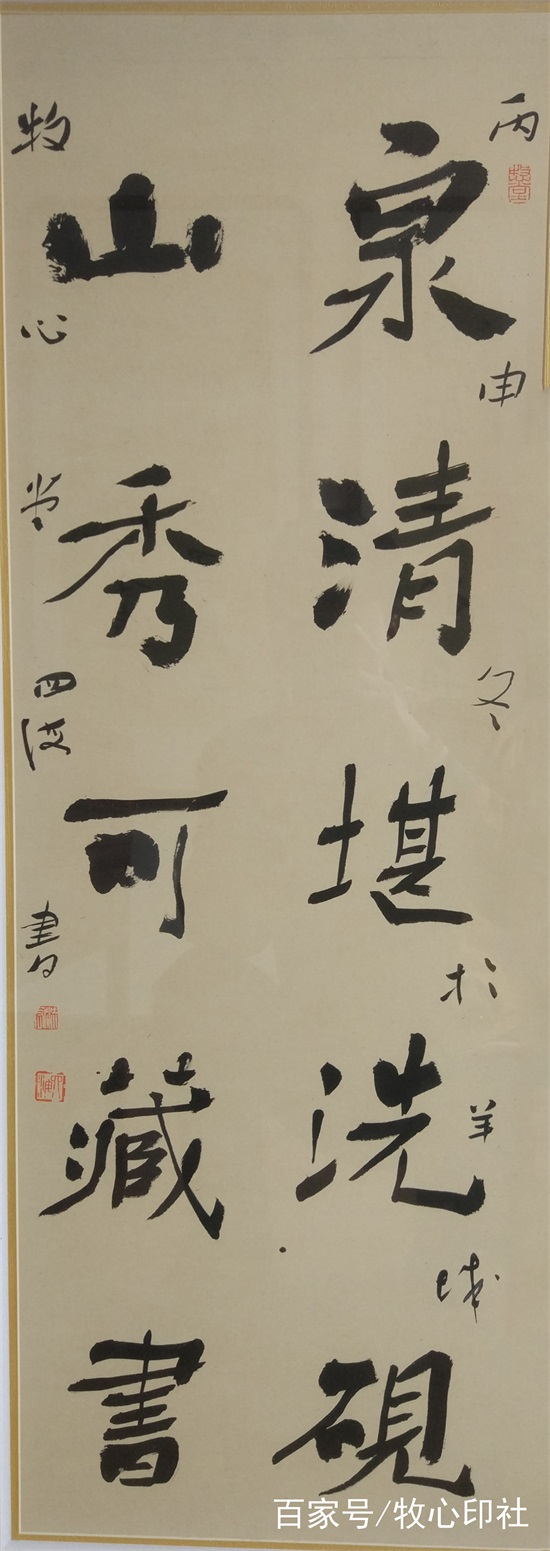 丙申冬於羊城
泉清堪洗硯
山秀可藏書
牧心堂四海書
百家号/牧心印社